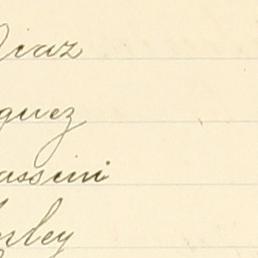 Diaz
guez
assini
rley